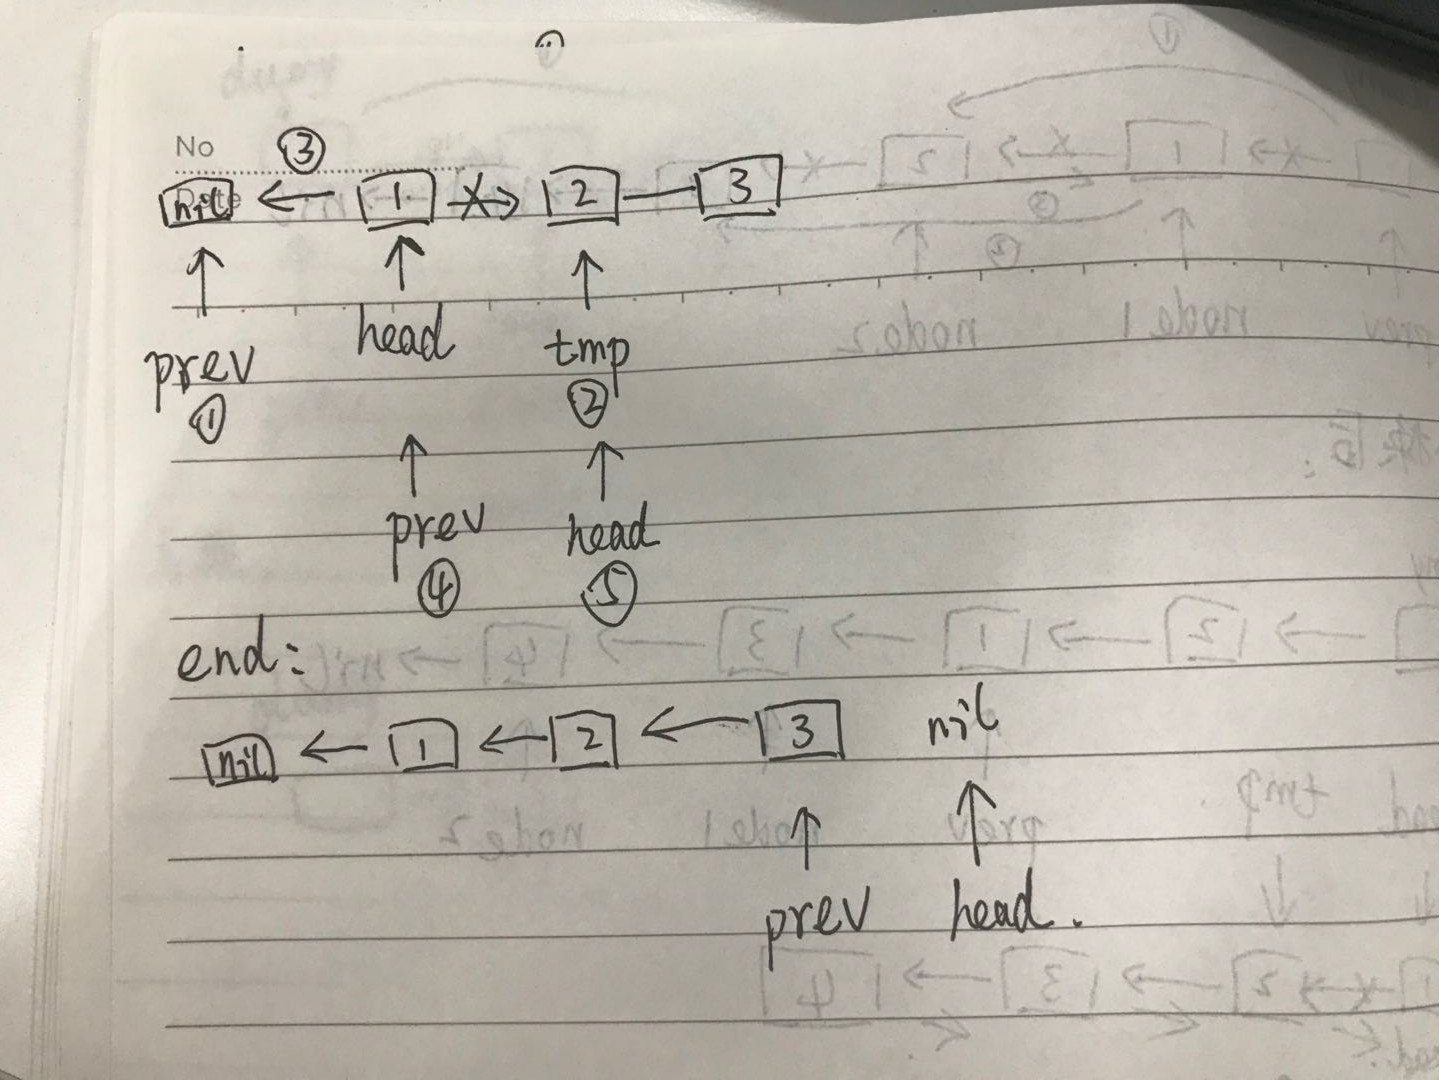 No ③
nil ← 1 → 2 — 3
prev head tmp
① ②
prev head
④ ⑤
end:
nil ← 1 ← 2 ← 3 nil
prev head.